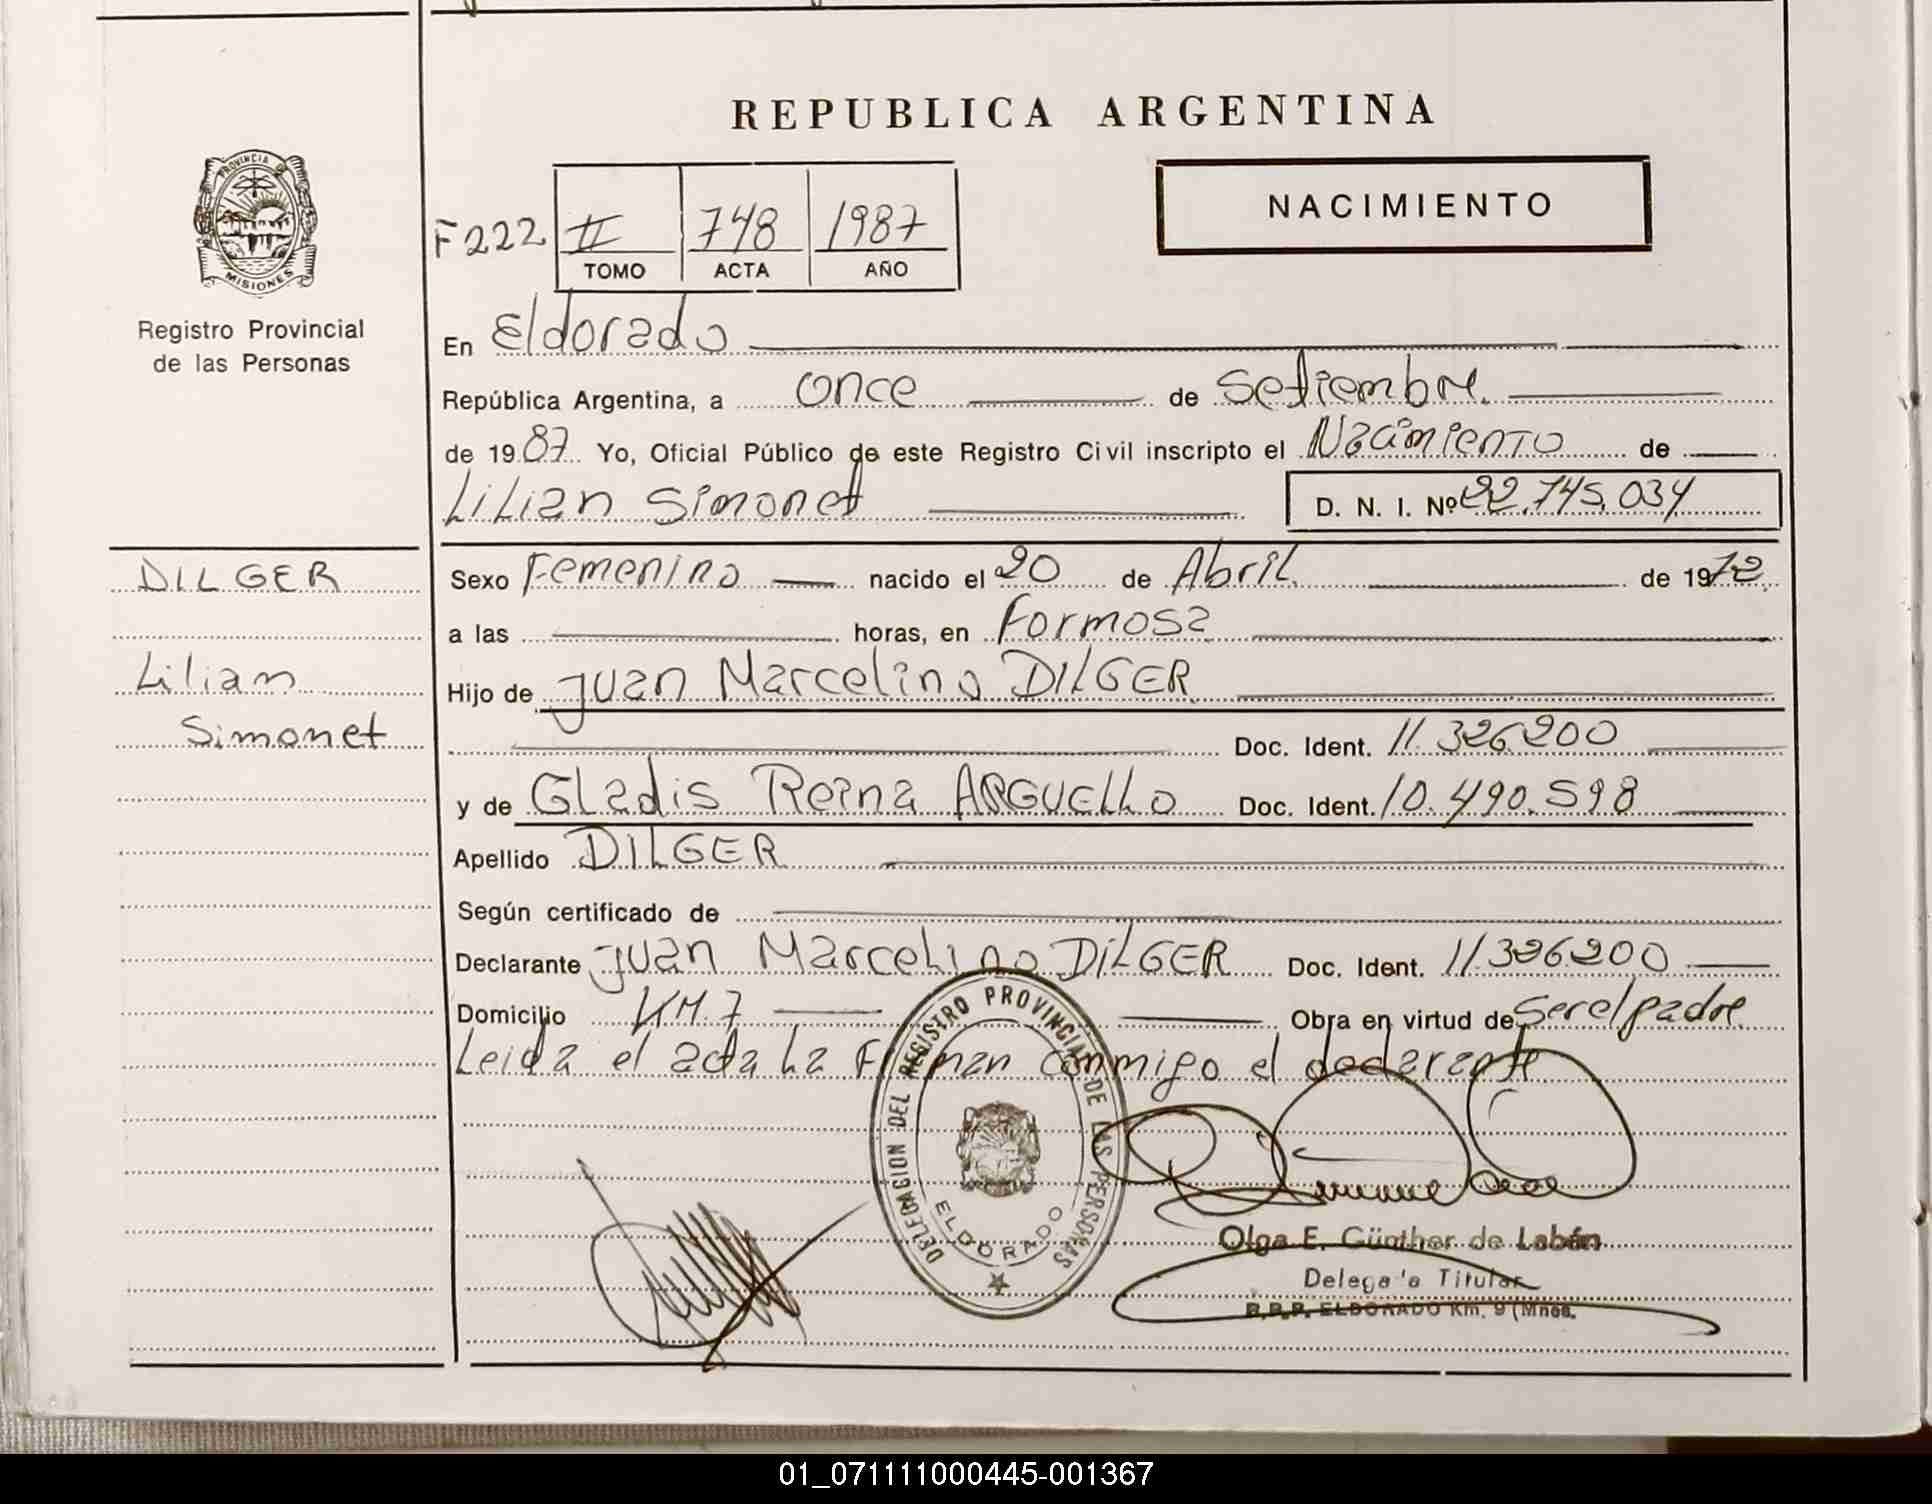 REPUBLICA ARGENTINA
PROVINCIA DE
MISIONES
Registro Provincial
de las Personas
F222 II 748 1987
TOMO ACTA AÑO
NACIMIENTO
En Eldorado
República Argentina, a once de Setiembre.
de 1987 Yo, Oficial Público de este Registro Civil inscripto el Nacimiento de
Lilian Simonet D. N. I. Nº 22.745.034
DILGER
Lilian
Simonet
Sexo Femenino nacido el 20 de Abril de 1972
a las horas, en Formosa
Hijo de Juan Marcelino DILGER
Doc. Ident. 11.326.200
y de Gladis Reina ARGUELLO Doc. Ident. 10.490.598
Apellido DILGER
Según certificado de
Declarante Juan Marcelino DILGER Doc. Ident. 11.326.200
Domicilio KM.7 Obra en virtud de ser el padre
Leida el acta la Firman conmigo el declarante
DELEGACION DEL REGISTRO PROVINCIAL DE LAS PERSONAS
ELDORADO
Olga E. Günther de Labán
Delegada Titular
R.P.P. ELDORADO Km. 9 (Mnes.
01_071111000445-001367